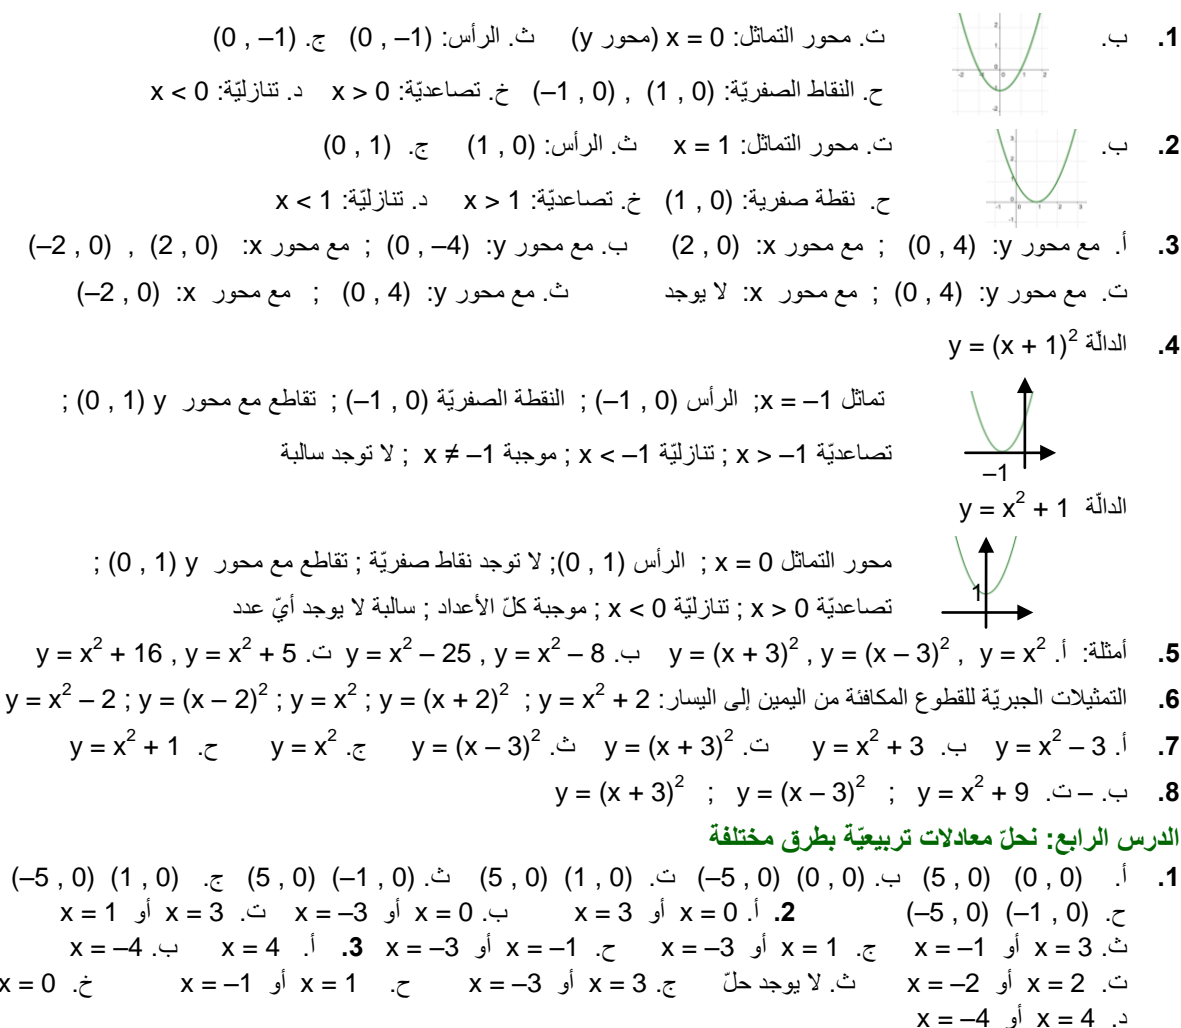 1. ب. ت. محور التماثل: x = 0 (محور y) ث. الرأس: (0 , –1) ج. (0 , –1)
ح. النقاط الصفريّة: (1 , 0) , (–1 , 0) خ. تصاعديّة: x > 0 د. تنازليّة: x < 0
2. ب. ت. محور التماثل: x = 1 ث. الرأس: (1 , 0) ج. (0 , 1)
ح. نقطة صفرية: (1 , 0) خ. تصاعديّة: x > 1 د. تنازليّة: x < 1
3. أ. مع محور y: (0 , 4) ; مع محور x: (2 , 0) ب. مع محور y: (0 , –4) ; مع محور x: (2 , 0) , (–2 , 0)
ت. مع محور y: (0 , 4) ; مع محور x: لا يوجد ث. مع محور y: (0 , 4) ; مع محور x: (–2 , 0)
4. الدالّة y = (x + 1)²
تماثل x = –1; الرأس (–1 , 0) ; النقطة الصفريّة (–1 , 0) ; تقاطع مع محور y (0 , 1) ;
تصاعديّة x > –1 ; تنازليّة x < –1 ; موجبة x ≠ –1 ; لا توجد سالبة
–1
الدالّة y = x² + 1
محور التماثل x = 0 ; الرأس (0 , 1); لا توجد نقاط صفريّة ; تقاطع مع محور y (0 , 1) ;
1
تصاعديّة x > 0 ; تنازليّة x < 0 ; موجبة كلّ الأعداد ; سالبة لا يوجد أيّ عدد
5. أمثلة: أ. y = (x + 3)² , y = (x – 3)² , y = x² ب. y = x² – 25 , y = x² – 8 ت. y = x² + 16 , y = x² + 5
6. التمثيلات الجبريّة للقطوع المكافئة من اليمين إلى اليسار: y = x² – 2 ; y = (x – 2)² ; y = x² ; y = (x + 2)² ; y = x² + 2
7. أ. y = x² – 3 ب. y = x² + 3 ت. y = (x + 3)² ث. y = (x – 3)² ج. y = x² ح. y = x² + 1
8. ب. – ت. y = (x + 3)² ; y = (x – 3)² ; y = x² + 9
الدرس الرابع: نحلّ معادلات تربيعيّة بطرق مختلفة
1. أ. (0 , 0) (5 , 0) ب. (0 , 0) (–5 , 0) ت. (1 , 0) (5 , 0) ث. (–1 , 0) (5 , 0) ج. (1 , 0) (–5 , 0)
ح. (–1 , 0) (–5 , 0) 2. أ. x = 0 أو x = 3 ب. x = 0 أو x = –3 ت. x = 3 أو x = 1
ث. x = 3 أو x = –1 ج. x = 1 أو x = –3 ح. x = –1 أو x = –3 3. أ. x = 4 ب. x = –4
ت. x = 2 أو x = –2 ث. لا يوجد حلّ ج. x = 3 أو x = –3 ح. x = 1 أو x = –1 خ. x = 0
د. x = 4 أو x = –4